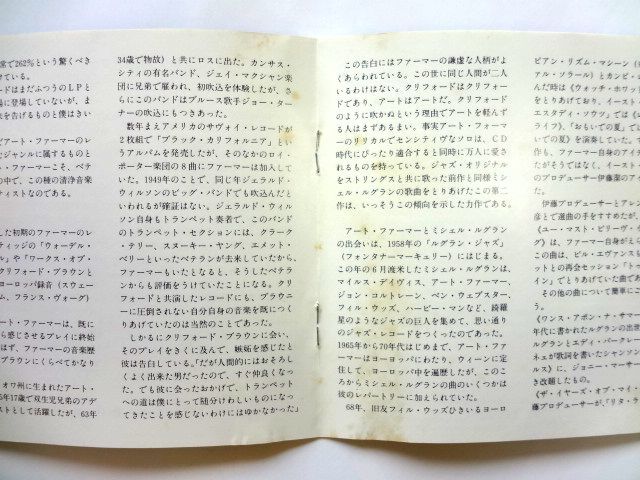 常で262％という驚くべき
けている。
ドはまだふつうのＬＰと
場に登場していないが、ま
末を告げるものと僕はきい
どアート・ファーマーのレ
なジャンルに属するものと
ァーマーこそ、ベテ
の中で、この種の清浄音楽
ティストなのである。
した初期のファーマーのレ
ティッジの「ウォーデル・
ル」や「ワークス・オブ・
クリフォード・ブラウンと
ヨーロッパ録音（スウェー
ム、フランス・ヴォーグ）
ト・ファーマーは、既に
から感じさせるプレイに終始
はず、ファーマーの音楽歴
ブラウンにくらべてかなり
オワ州に生まれたアート・
5年17歳で双生児兄弟のアデ
ストとして活躍したが、63年
34歳で物故）と共にロスに出た。カンサス・
シティの有名バンド、ジェイ・マクシャン楽
団に兄弟で雇われ、初吹込を体験したが、さ
らにこのバンドはブルース歌手ジョー・ター
ナーの吹込にもつきあった。
数年まえアメリカのサヴォイ・レコードが
２枚組で「ブラック・カリフォルニア」とい
うアルバムを発売したが、そのなかのロイ・
ポーター楽団の８曲にファーマーは加入して
いた。1949年のことで、同じ年ジェラルド・
ウィルソンのビッグ・バンドでも吹込んだと
いわれるが確証はない。ジェラルド・ウィル
ソン自身もトランペット奏者で、このバンド
のトランペット・セクションには、クラーク
・テリー、スヌーキー・ヤング、エメット・
ベリーといったベテランが去来していたから、
ファーマーもいたとなると、そうしたベテラ
ンからも評価をうけていたことになる。クリ
フォードと共演したレコードにも、ブラウニ
ーに圧倒されない自分自身の音楽を既につく
りあげていたのは当然のことであった。
しかるにクリフォード・ブラウンに会い、
そのプレイをきくに及んで、嫉妬を感じたと
彼は告白している。「だが人間的にはおそろし
くよく出来た男だったので、すぐ仲良くなっ
た。でも彼に会ったおかげで、トランペット
への道は僕にとって随分けわしいものになっ
てきたことを感じないわけにはゆかなかった」
この告白にはファーマーの謙虚な人柄がよ
くあらわれている。この世に同じ人間が二人
いるわけはない。クリフォードはクリフォー
ドであり、アートはアートだ。クリフォード
のように吹かぬという理由でアートを軽んず
る人はまずあるまい。事実アート・ファーマ
ーのリリカルでセンシティヴなソロは、ＣＤ
時代にぴったり適合すると同時に万人に愛さ
れるものを持っている。ジャズ・オリジナル
をストリングスと共に歌った前作と同様ミシ
ェル・ルグランの歌曲をとりあげたこの第二
作は、いっそうこの傾向を示した力作である。
アート・ファーマーとミシェル・ルグラン
の出会いは、1958年の「ルグラン・ジャズ」
（フォンタナマーキュリー）にはじまる。
この年の６月渡米したミシェル・ルグランは、
マイルス・デイヴィス、アート・ファーマー、
ジョン・コルトレーン、ベン・ウェブスター、
フィル・ウッズ、ハービー・マンなど、綺羅
星のようなジャズの巨人を集めて、思い通り
のジャズ・レコードをつくったのであった。
1965年から70年代はじめまで、アート・ファ
ーマーはヨーロッパにわたり、ウィーンに定
住して、ヨーロッパ中を遍歴したが、このこ
ろからミシェル・ルグランの曲のいくつかは
彼のレパートリーに加えられていた。
68年、旧友フィル・ウッズひきいるヨーロ
ピアン・リズム・マシーン（
ァル・ソラール）とカンビ・
んだ時は《ウォッチ・ホワッ
をとりあげており、イースト
エスタディ・ソウツ」では《
ライフ》、「おもいでの夏」で
いでの夏》を演奏していた。
も、ファーマー自身のアイデ
たがそうではなく、イースト
のプロデューサー伊藤潔のア
た。
伊藤プロデューサーとアレン
彦とで選曲の手をすすめたが、
《ユー・マスト・ビリーヴ・
グ》は、ファーマー自身がえ
この曲は、ビル・エヴァンスも
ットとの再会セッション「ト
エイン」でとりあげていた曲で
その他の曲について簡単にコ
う。
《ワンス・アポン・ナ・サマー
年代に書かれたルグランの出世
ルグランとエディ・バークレー
ネェが歌詞を書いたシャンソン
ルス》に、ジョニー・マーサー
き改題したもの。
《ザ・イヤーズ・オブ・マイ・
藤プロデューサーが、「リタ・ラ